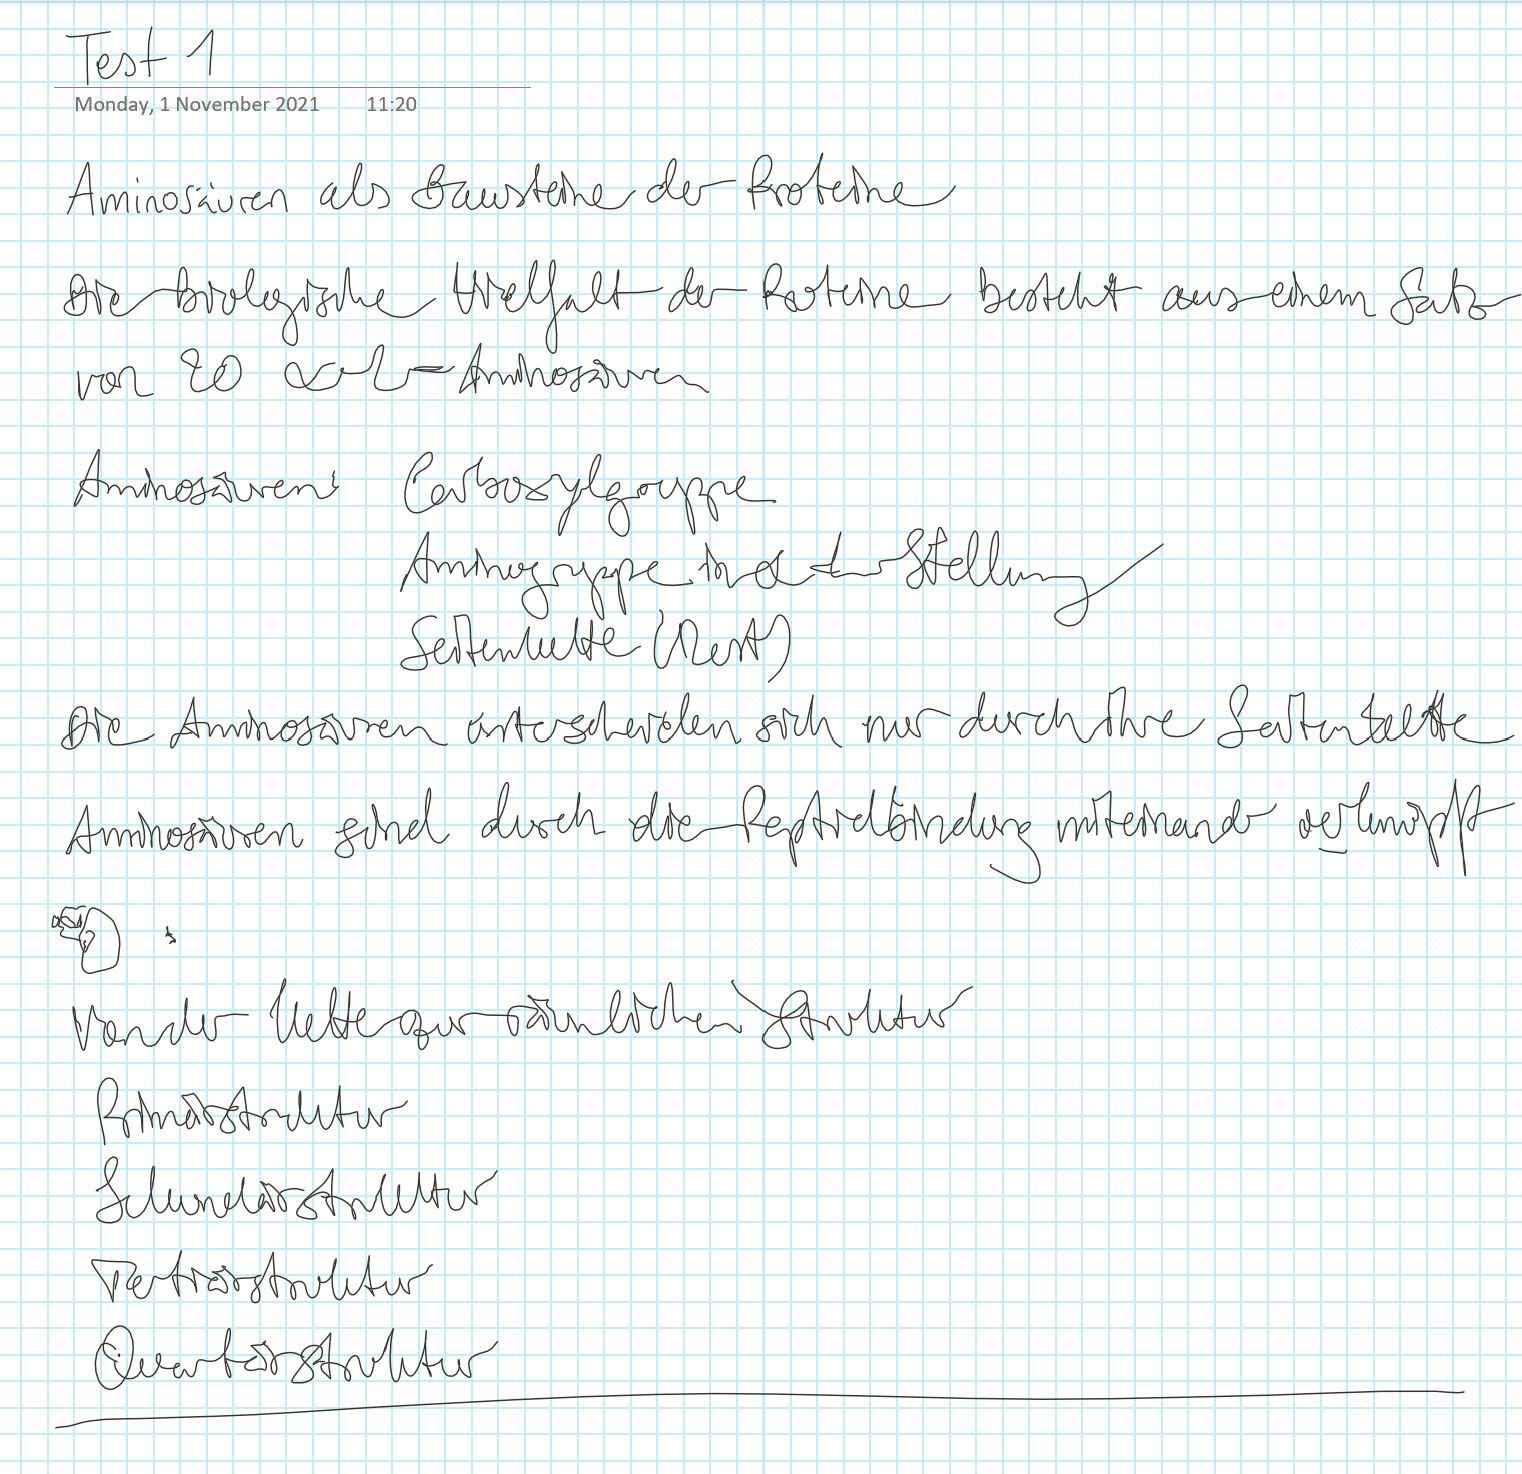 Test 1
Monday, 1 November 2021 11:20
Aminosäuren als Bausteine der Proteine
Die biologische Vielfalt der Proteine besteht aus einem Satz
von 20 α-L-Aminosäuren
Aminosäuren: Carboxylgruppe
Aminogruppe in α Stellung
Seitenkette (Rest)
Die Aminosäuren unterscheiden sich nur durch ihre Seitenkette
Aminosäuren sind durch die Peptidbindung miteinander verknüpft
Von der Kette zur räumlichen Struktur
Primärstruktur
Sekundärstruktur
Tertiärstruktur
Quartärstruktur